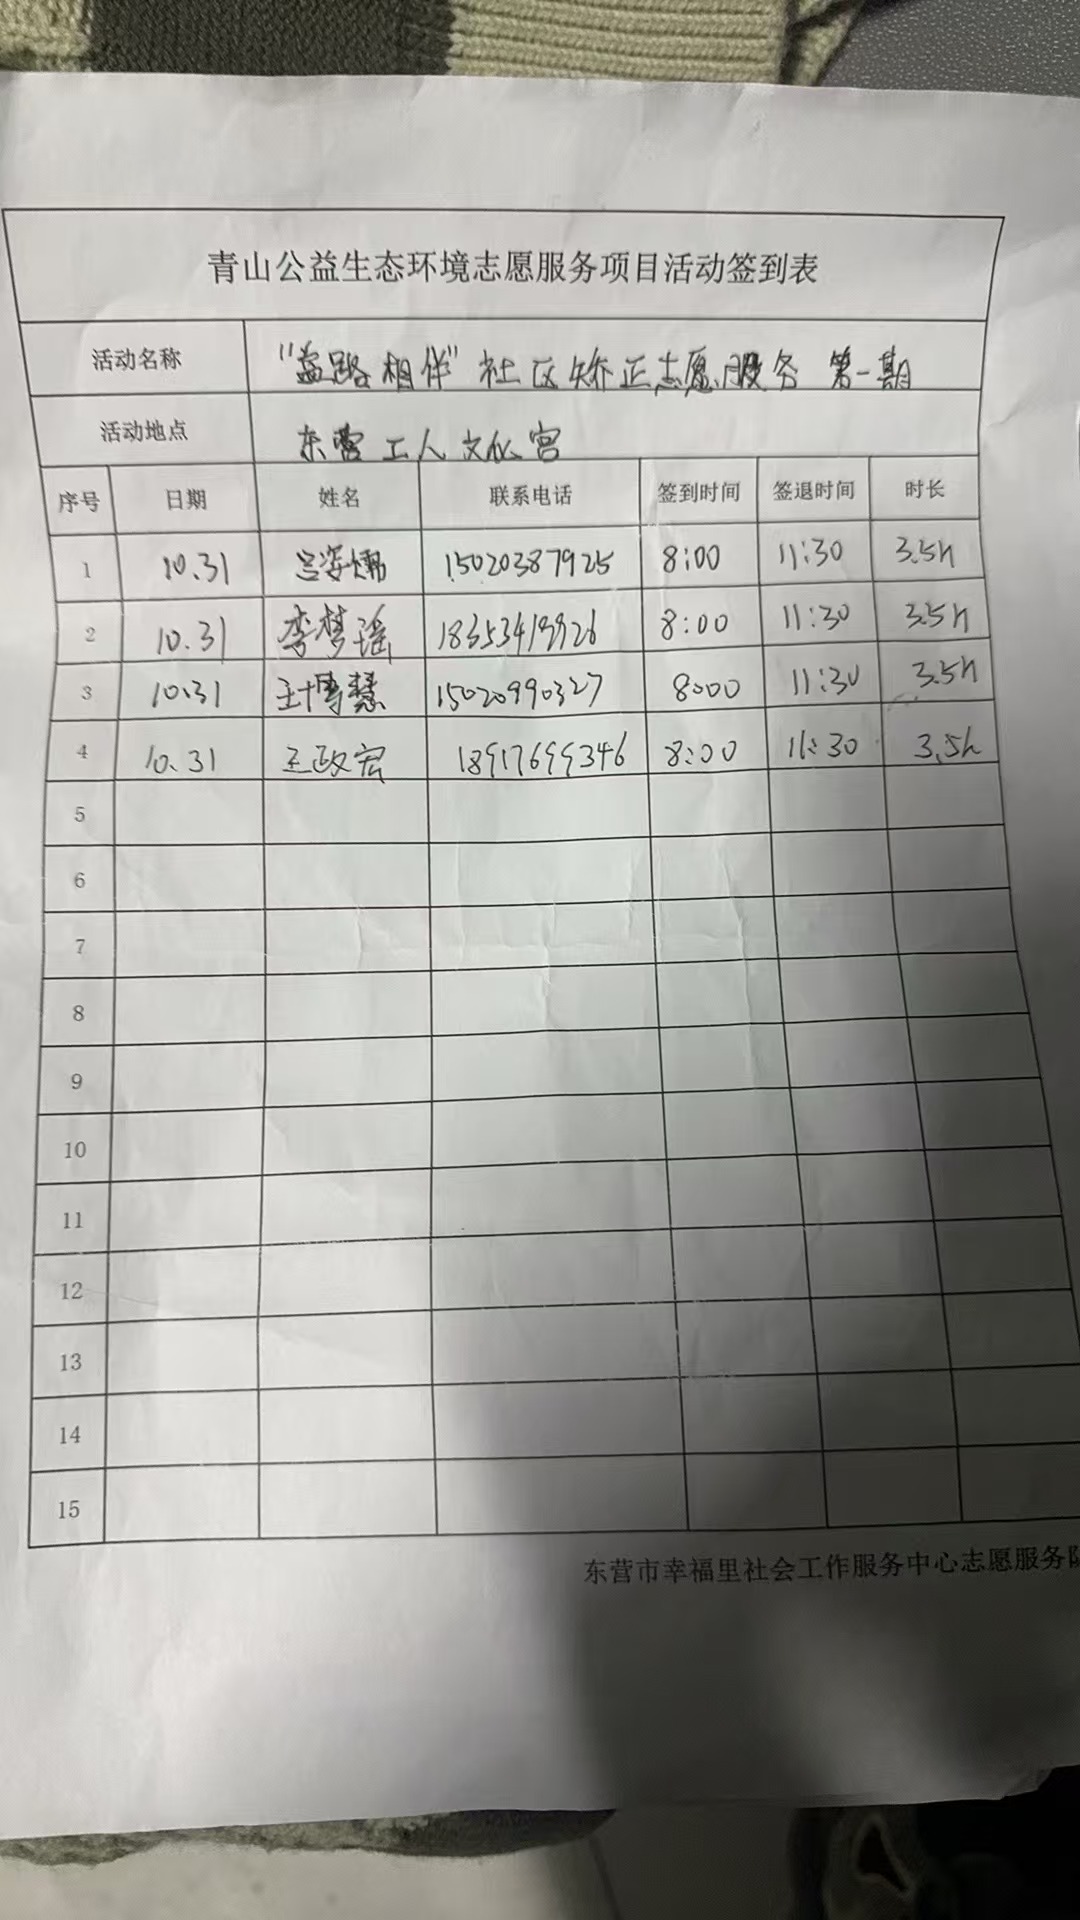 青山公益生态环境志愿服务项目活动签到表
活动名称 "益路相伴"社区矫正志愿服务 第一期
活动地点 东营工人文化宫
序号 日期 姓名 联系电话 签到时间 签退时间 时长
1 10.31 15020387925 8:00 11:30 3.5h
2 10.31 李梦瑶 8:00 11:30 3.5h
3 10.31 15020990327 8:00 11:30 3.5h
4 10.31 王政宏 8:00 11:30 3.5h
5
6
7
8
9
10
11
12
13
14
15
东营市幸福里社会工作服务中心志愿服务队